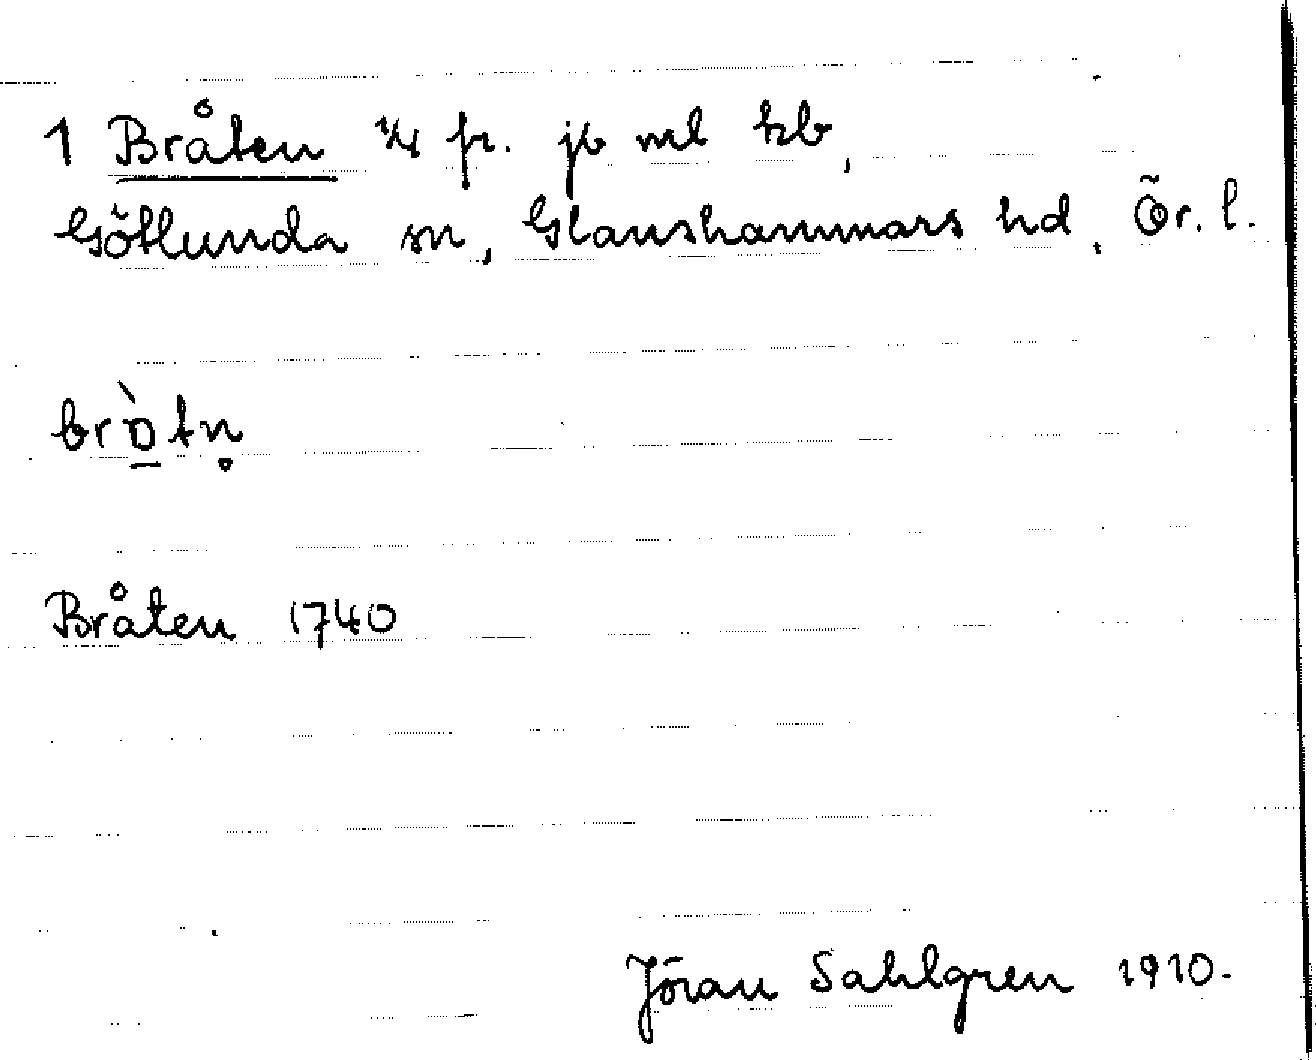 1 Bråten 1/4 fr. jb ml kb,
Götlunda sn, Glanshammars hd, Ör. l.
brò̱tn̥
Bråten 1740
Jöran Sahlgren 1910.